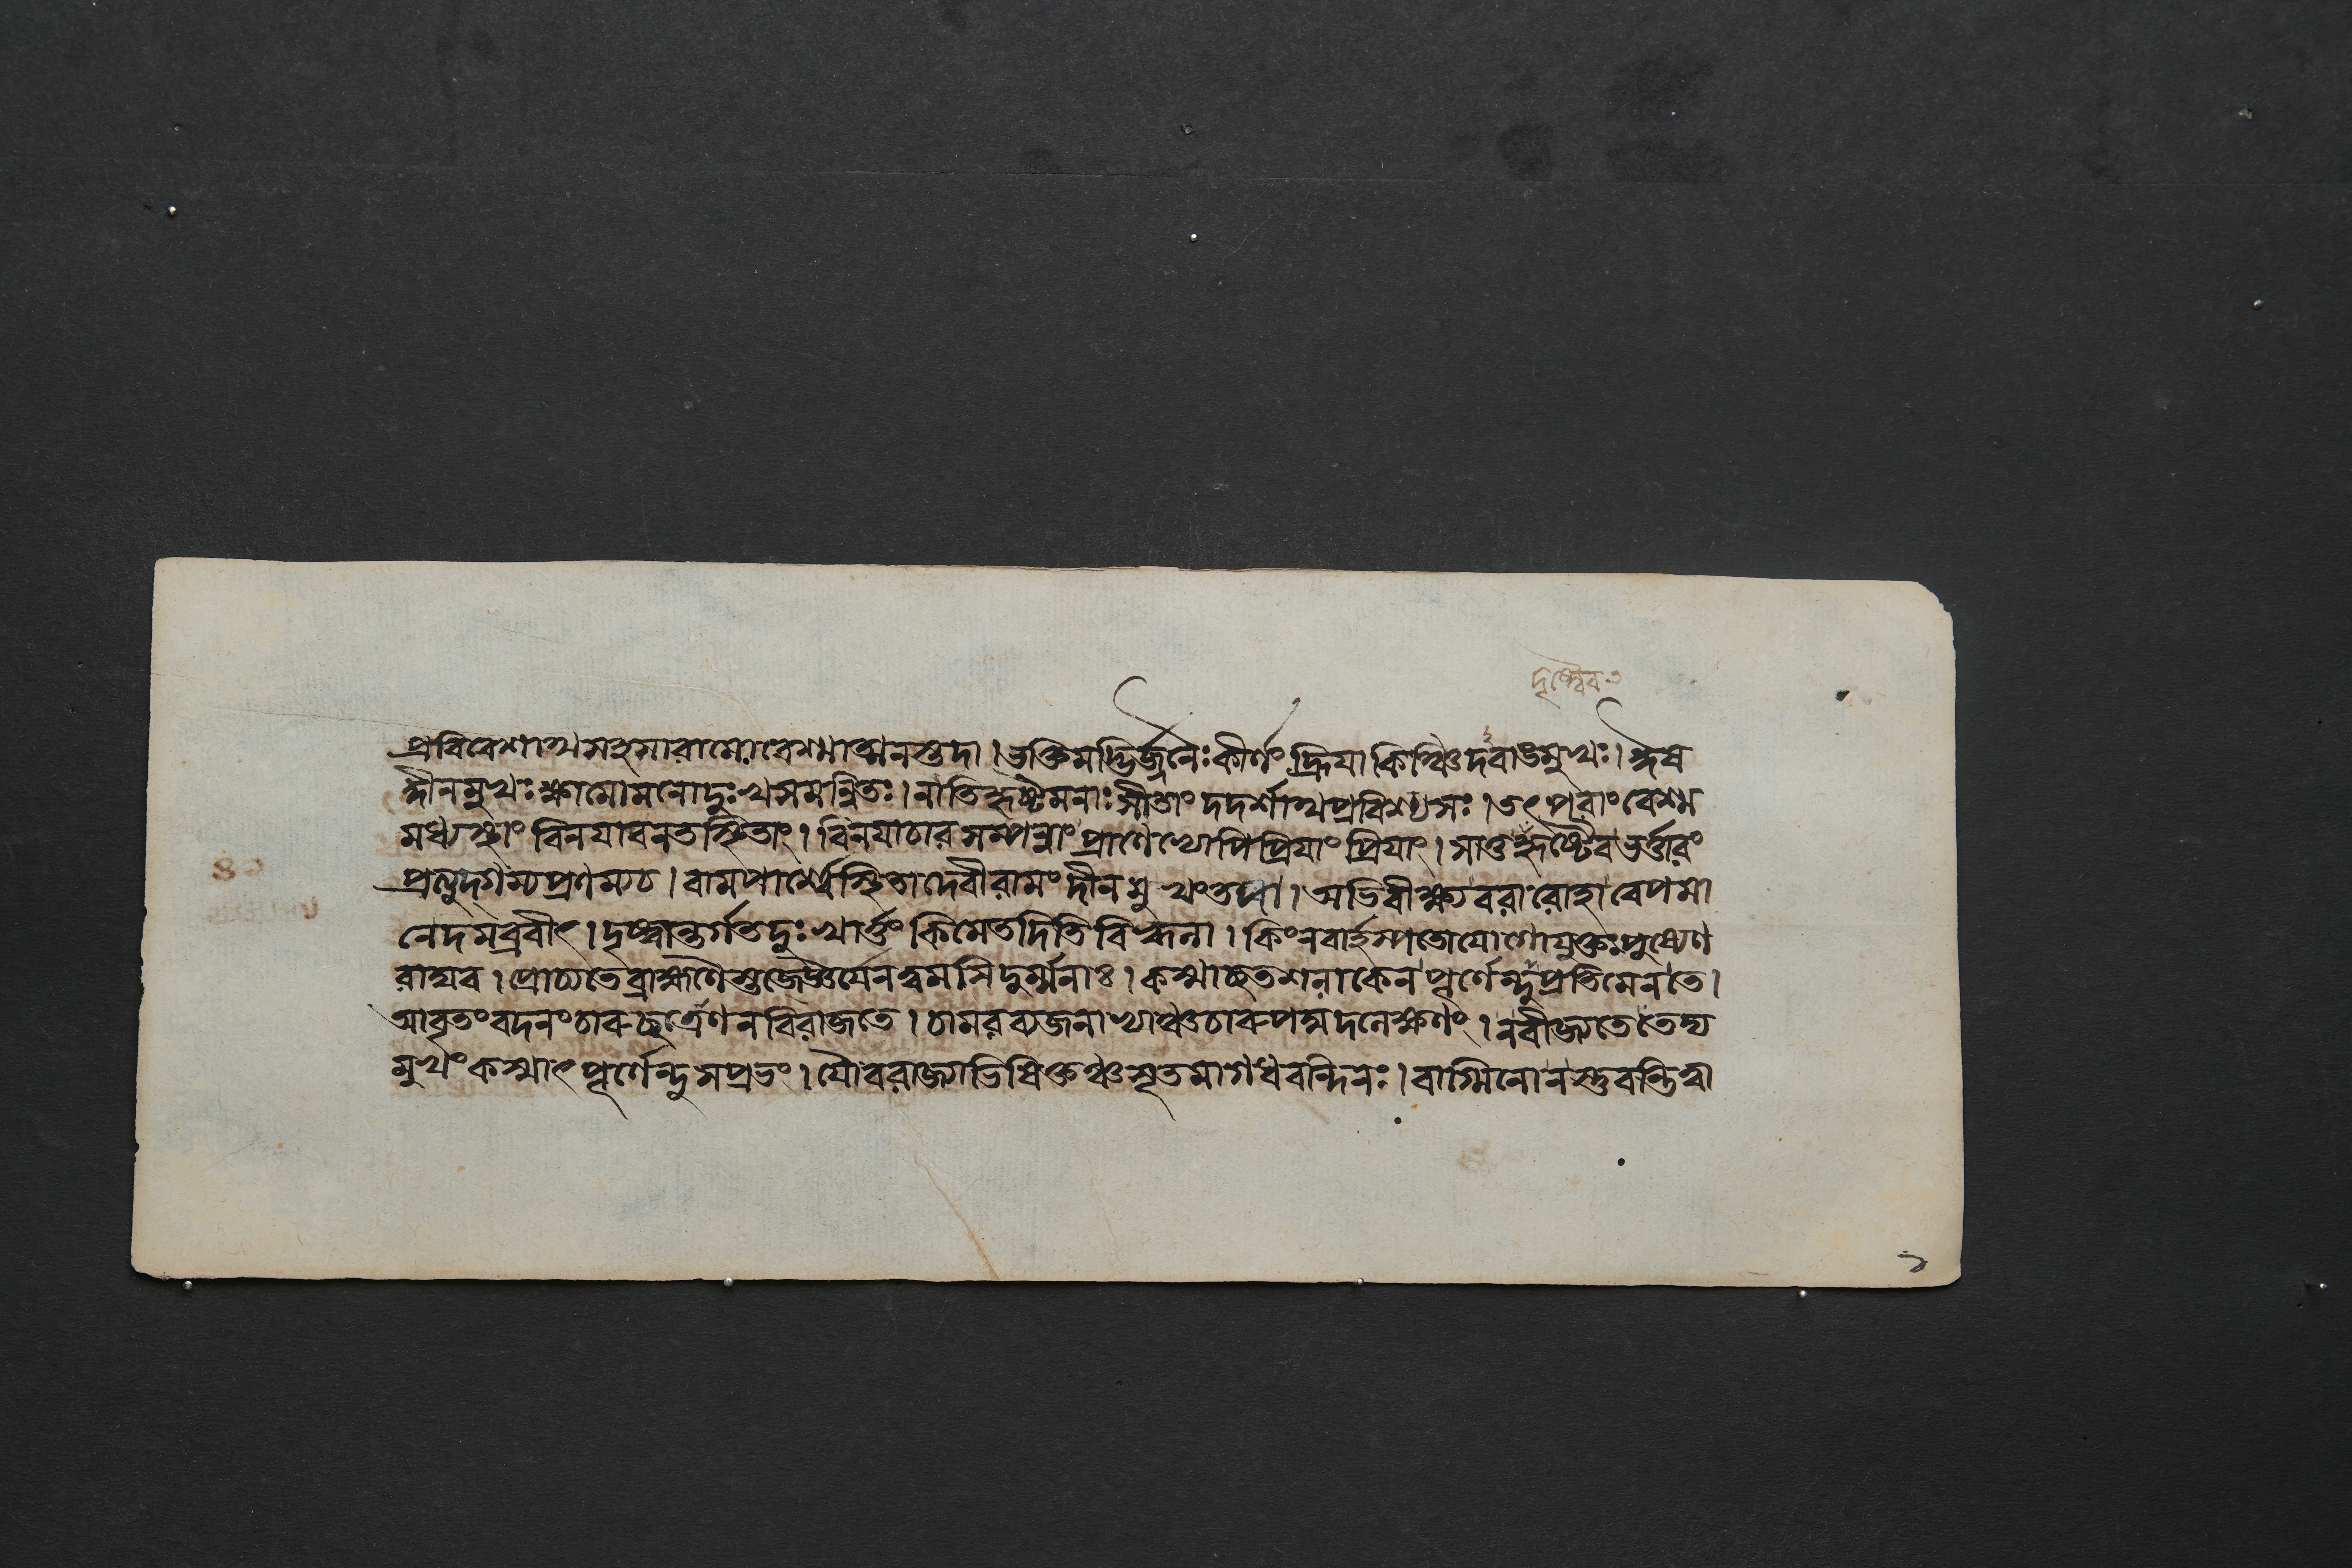 দৃষ্ট্বৈব
প্রবিবেশাথ সহসা রামো বেশ্মাত্মনস্তদা । ভক্তিমদ্ভির্জ্জনৈঃ কীর্ণং হ্রিয়া কিঞ্চিদবাঙমুখঃ । ঈষ
দ্দীনমুখঃ ক্ষামো মনোদুঃখসমন্বিতঃ । নাতিহৃষ্টমনাঃ সীতাং দদর্শাথ প্রবিশ্য সঃ । তৎপরাং বেশ্ম
মধ্যস্থাং বিনয়াবনতস্থিতাং । বিনয়াচারসম্পন্নাং প্রাণেভ্যোপি প্রিয়াং প্রিয়াং । সা তু হৃষ্টৈব ভর্ত্তারং
প্রত্যুদ্গম্য প্রণম্য চ । বামপার্শ্বে স্থিতা দেবী রামং দীনমুখং তথা । অভিবীক্ষ্য বরারোহা বেপমা
নেদমব্রবীৎ । দৃষ্ট্বান্তর্গতদুঃখার্ত্তং কিমেতদিতি বিহ্বলা । কিং ন বার্হস্পতো যোগো যুক্তঃ পুষ্যেণ
রাঘব । প্রোচ্যতে ব্রাহ্মণৈস্তজ্‌জ্ঞৈর্যেন ত্বমসি দুর্ম্মনাঃ । কস্মাচ্ছতশলাকেন পূর্ণেন্দুপ্রতিমেন তে ।
আবৃতং বদনং চারু ছত্রেণ ন বিরাজতে । চামরব্যজনাভ্যাঞ্চ চারুপদ্মদলেক্ষণং । ন বীজ্যতে তেদ্য
মুখং কস্মাৎ পূর্ণেন্দুসপ্রভং । যৌবরাজ্যাভিষিক্তঞ্চ সূতমাগধবন্দিনঃ । বাগ্মিনো ন স্তুবন্তি ত্বা